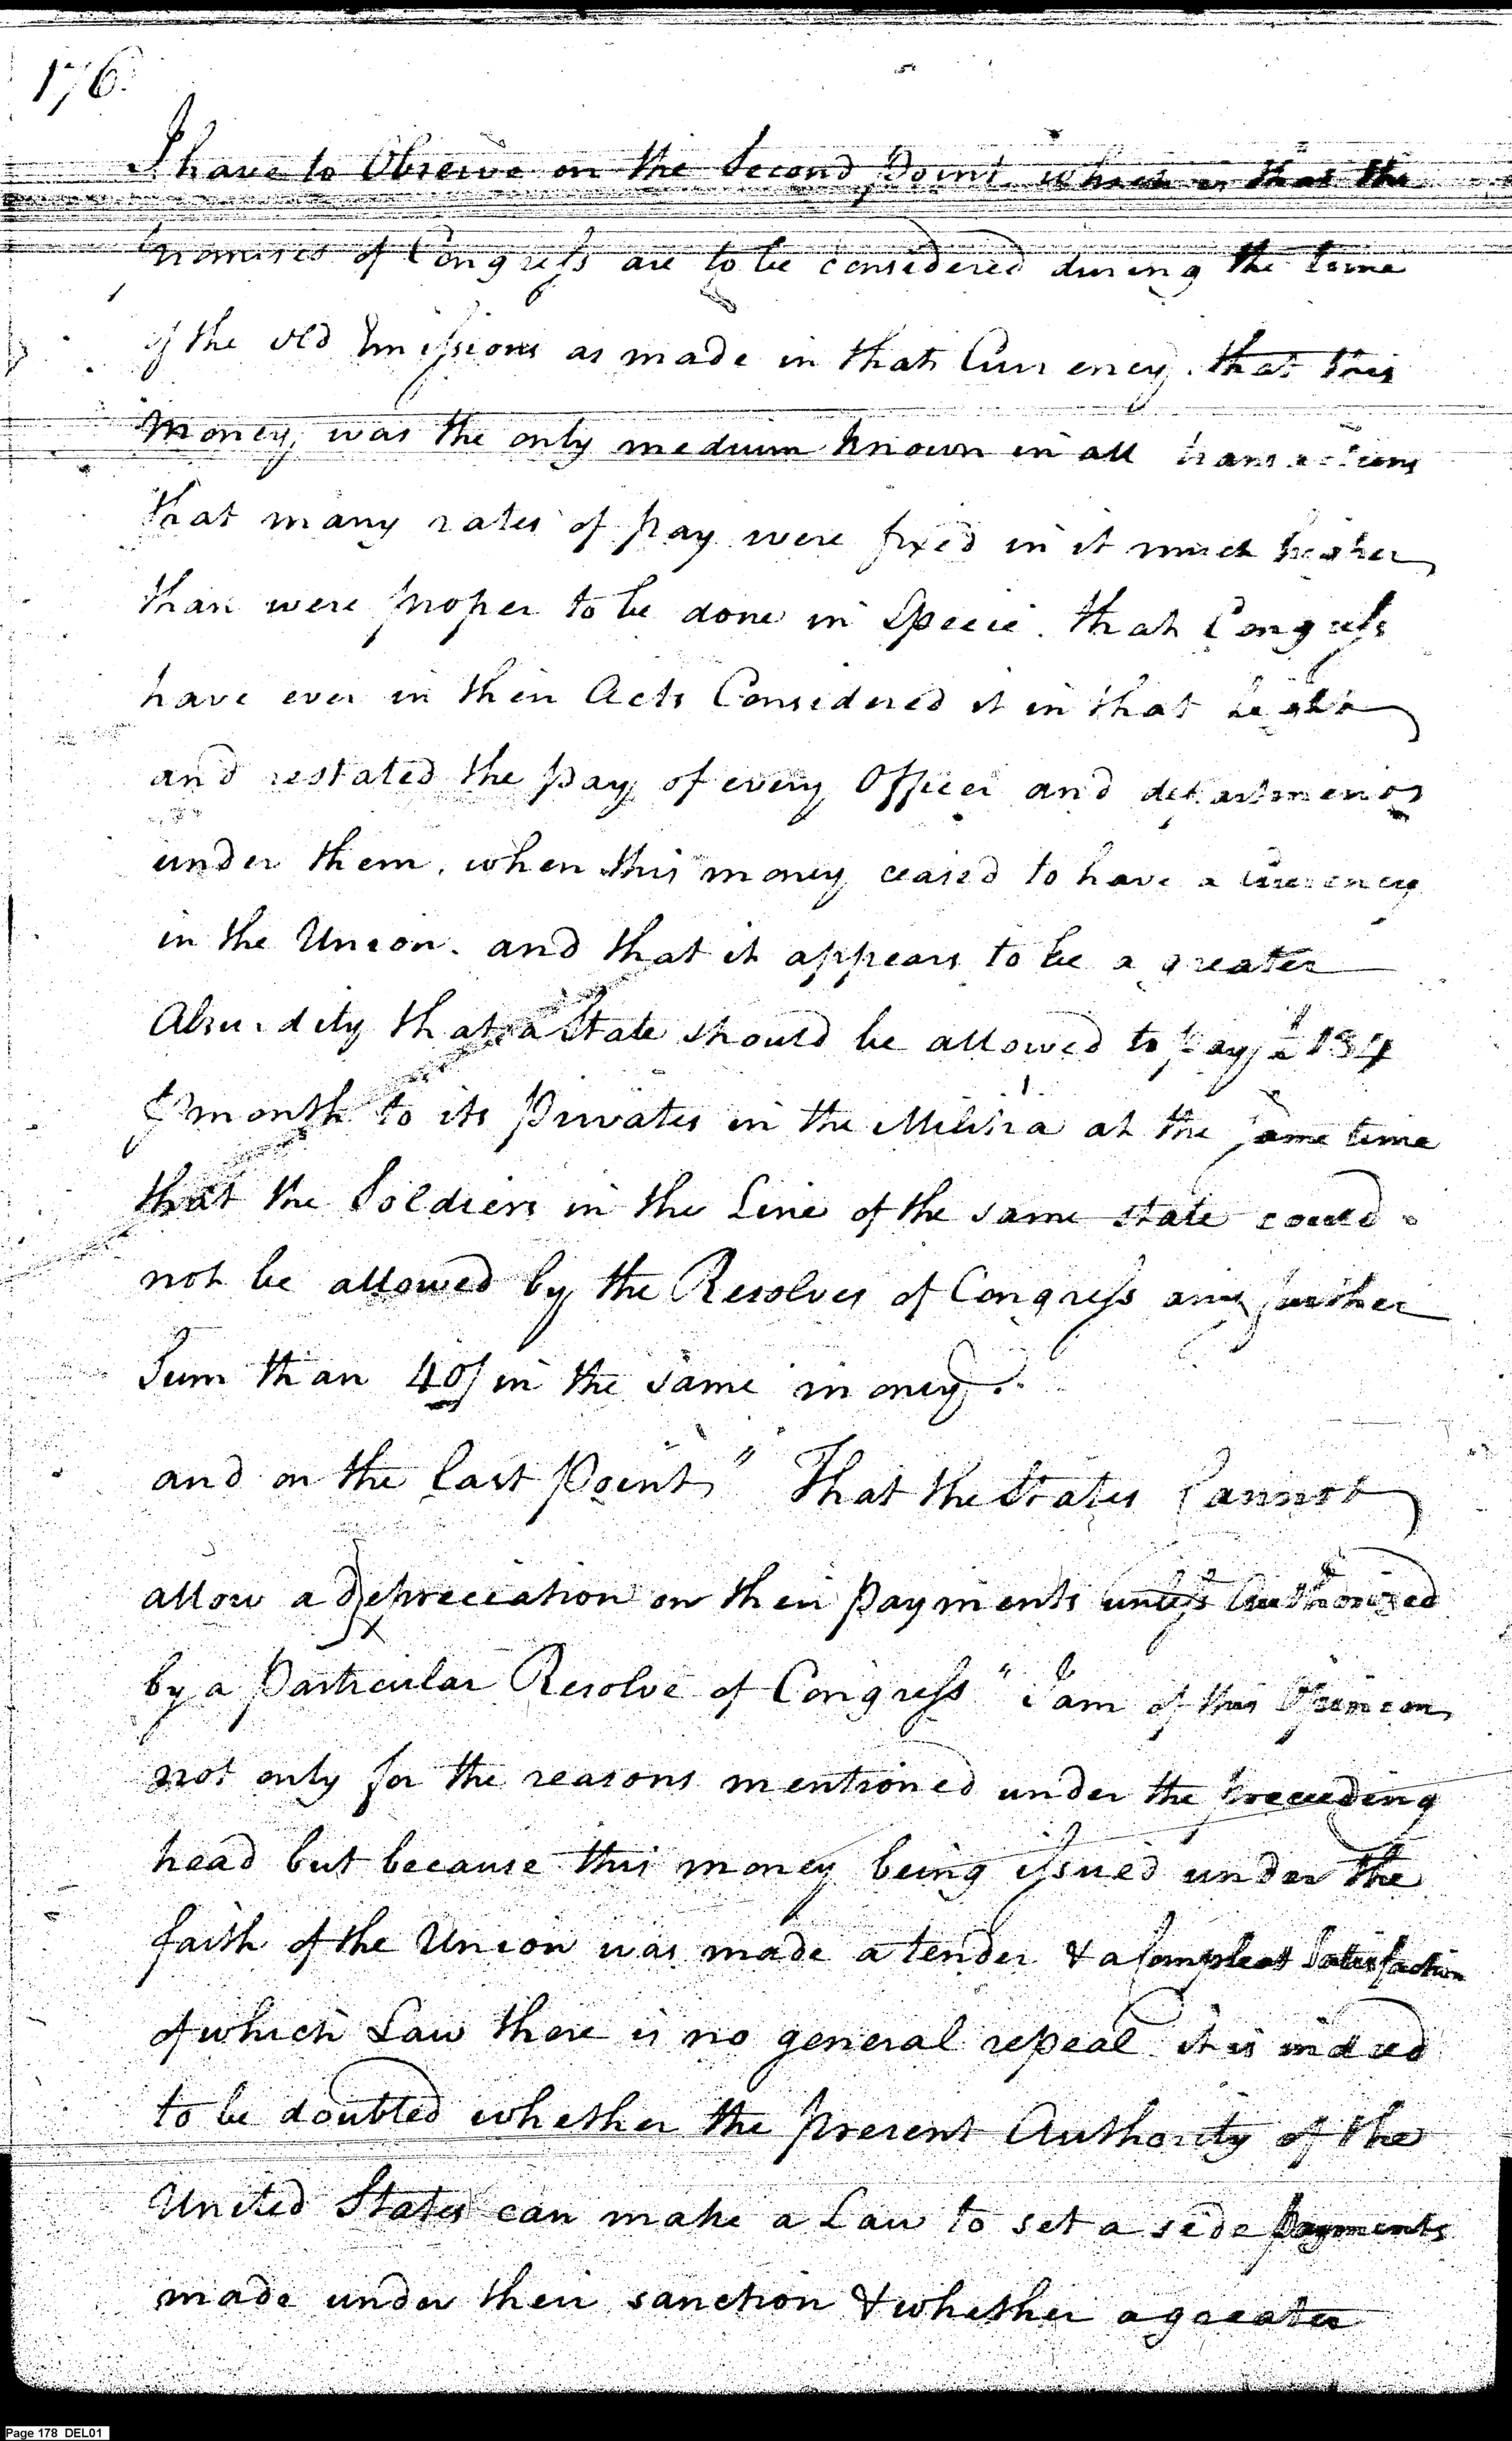 176.
I have to Observe on the Second Point which is that the
promises of Congress are to be considered during the time
of the old Emissions as made in that Currency. that this
Money, was the only medium known in all transactions
that many rates of pay were fixed in it much higher
than were proper to be done in Specie. that Congress
have ever in their Acts Considered it in that light
and restated the pay of every Officer and departments
under them. when this money ceased to have a Currency
in the Union. and that it appears to be a greater
Absurdity that a State should be allowed to pay £ 134
⅌ month to its Privates in the Militia at the same time
that the Soldiers in the Line of the same state could
not be allowed by the Resolves of Congress any further
Sum than 40/ in the same money.
and on the last Point, " That the States Cannot
allow a Depreciation on their payments unless Authorized
by a Particular Resolve of Congress " I am of this Opinion
not only for the reasons mentioned under the preceeding
head but because this money being issued under the
faith of the Union was made a tender & a Compleat Satisfaction
of which Law there is no general repeal it is indeed
to be doubted whether the present Authority of the
United States can make a Law to set a side payments
made under their sanction & whether a greater
Page 178 DEL01